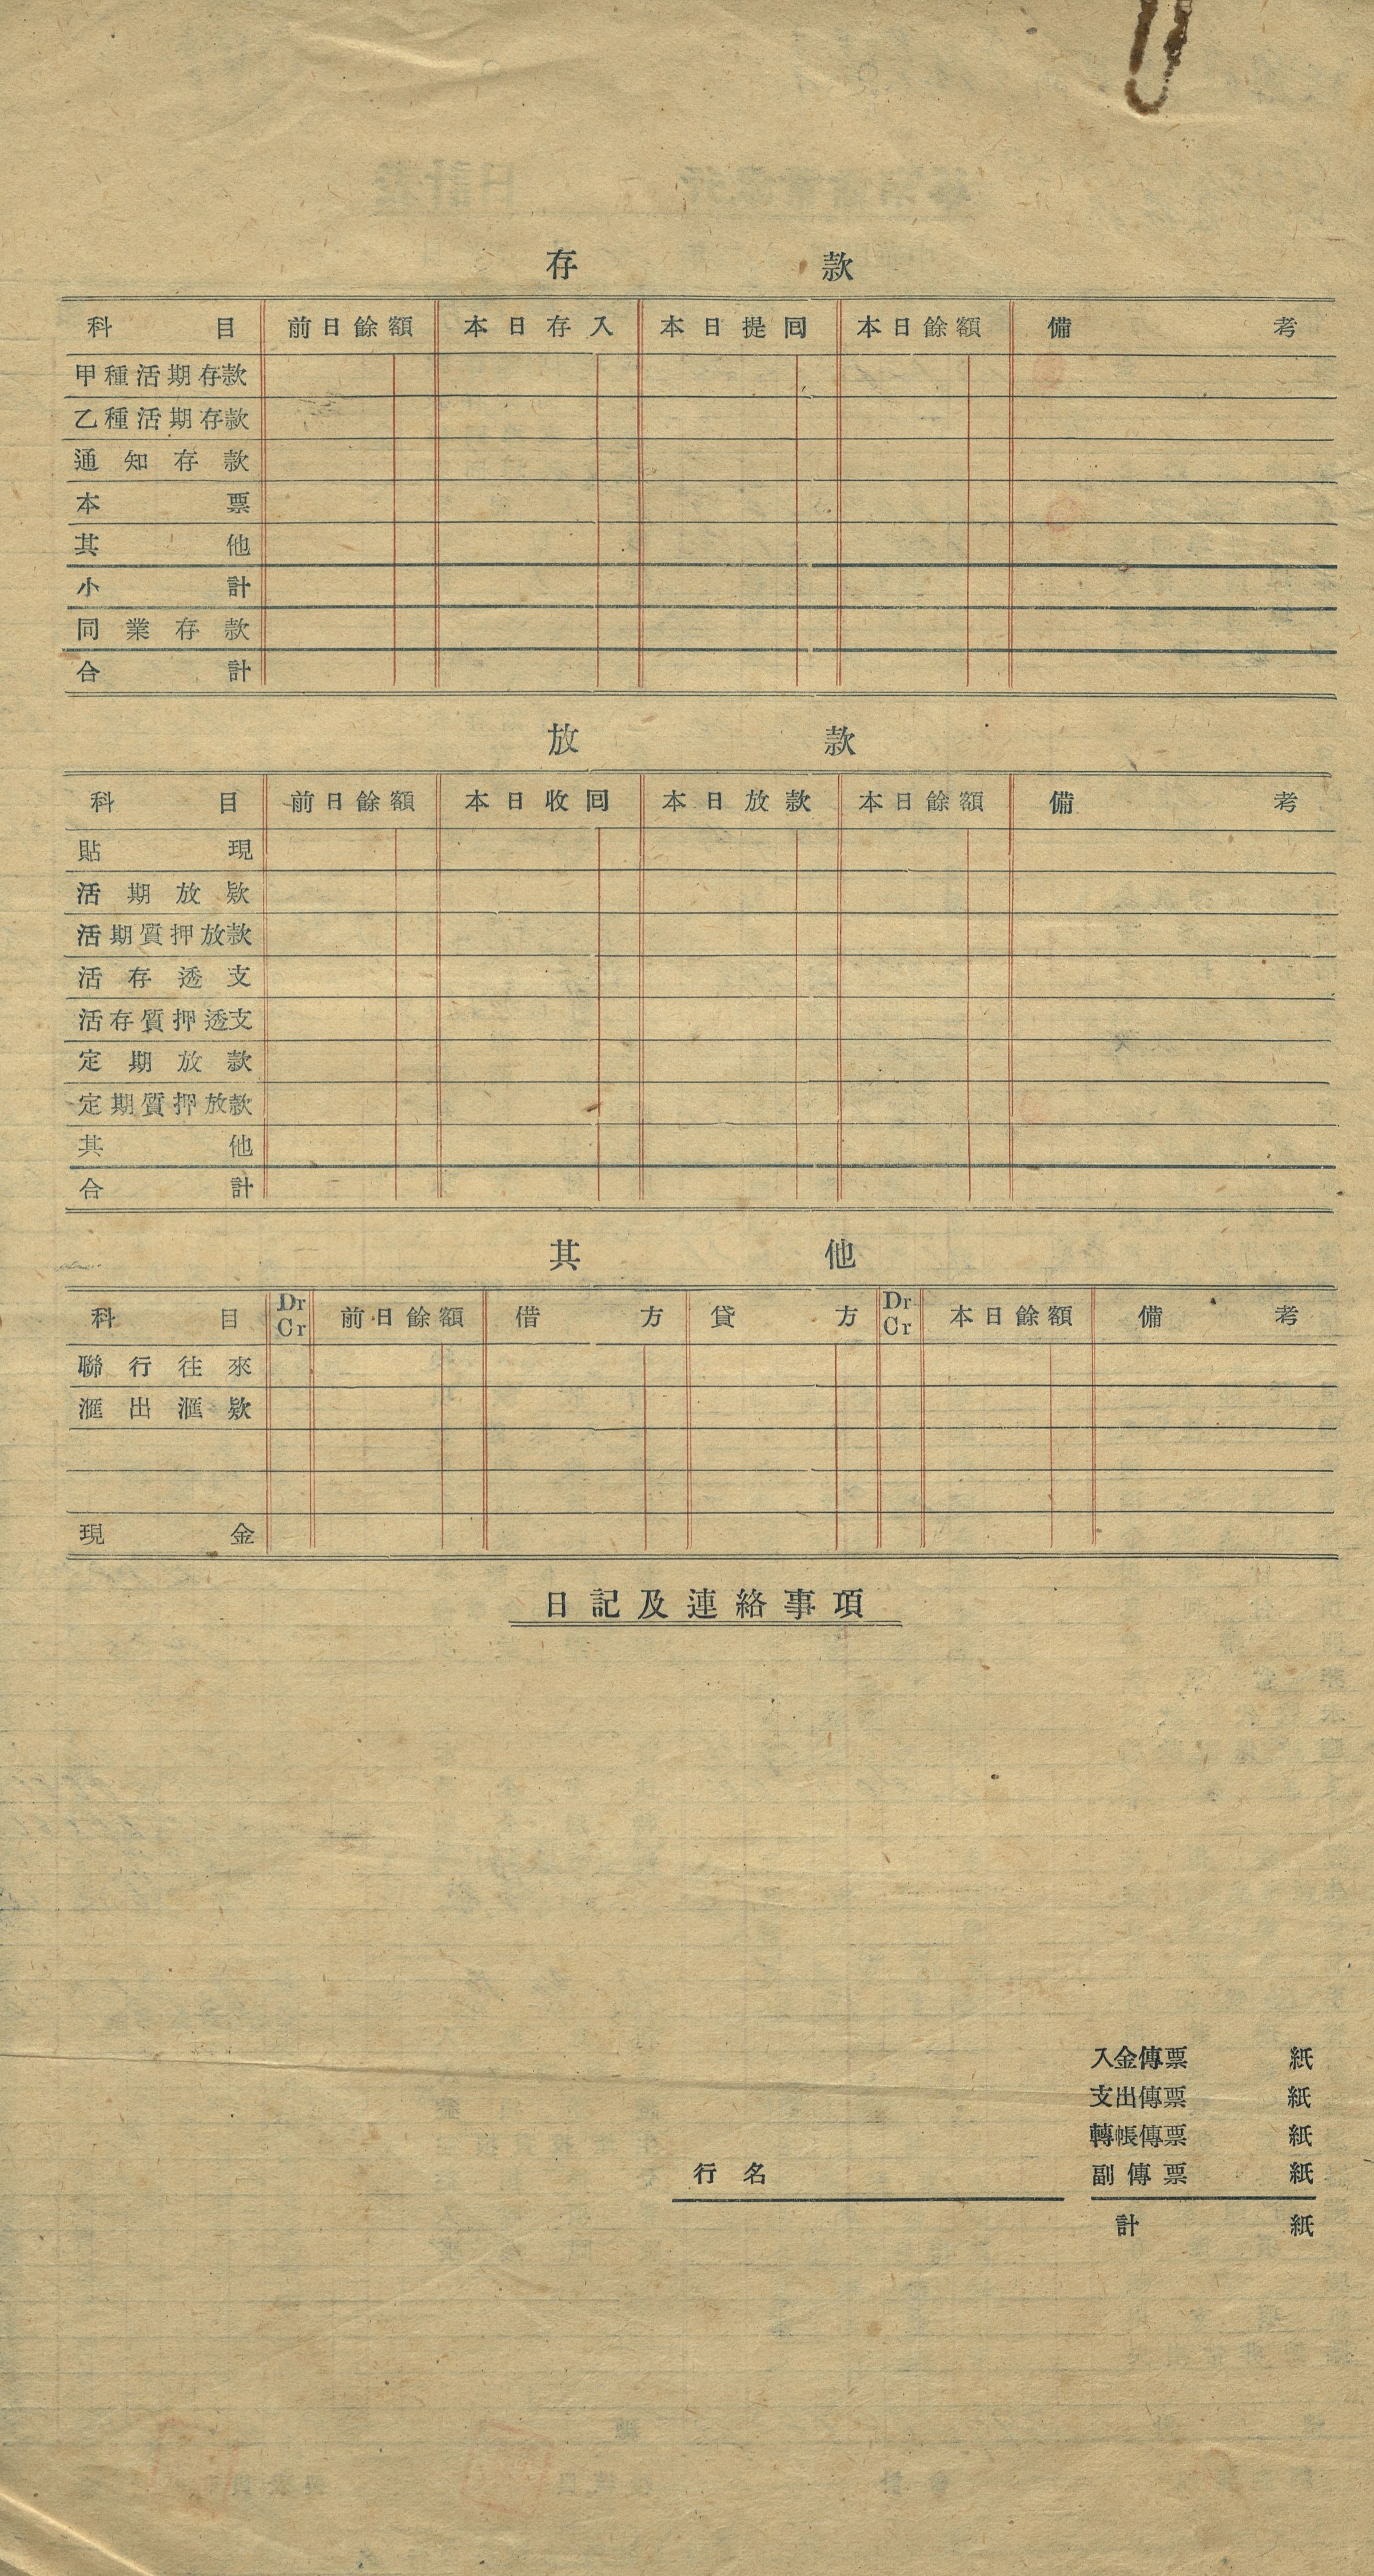 存款
科目 前日餘額 本日存入 本日提囘 本日餘額 備考
甲種活期存款
乙種活期存款
通知存款
本票
其他
小計
同業存款
合計
放款
科目 前日餘額 本日收囘 本日放款 本日餘額 備考
貼現
活期放欵
活期質押放款
活存透支
活存質押透支
定期放款
定期質押放款
其他
合計
其他
科目 Dr Cr 前日餘額 借方 貸方 Dr Cr 本日餘額 備考
聯行往來
滙出滙欵
現金
日記及連絡事項
入金傳票 紙
支出傳票 紙
轉帳傳票 紙
行名
副傳票 紙
計 紙